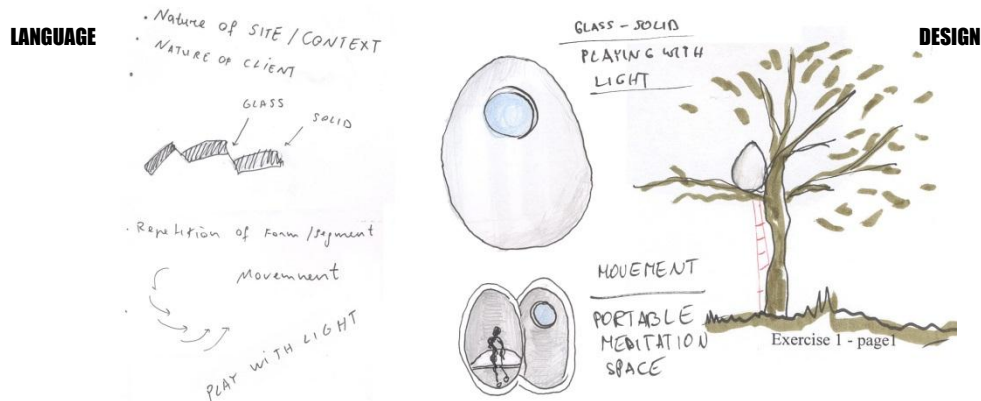 LANGUAGE
DESIGN
• Nature of SITE / CONTEXT
• NATURE OF CLIENT
•
GLASS
SOLID
• Repetition of Form / segment
Movemnent
•
PLAY WITH LIGHT
GLASS - SOLID
PLAYING WITH
LIGHT
MOVEMENT
PORTABLE
MEDITATION
SPACE
Exercise 1 - page1